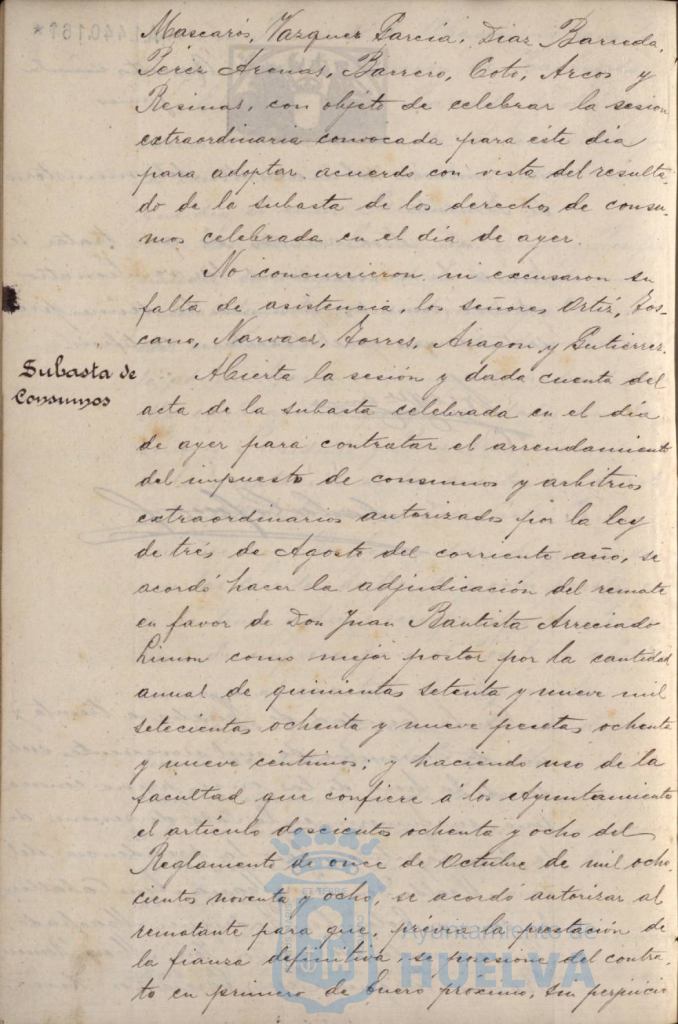 Mascarós, Vazquez García, Diaz Barreda,
Pérez Arenas, Barrero, Coto, Arcos y
Resinas, con objeto de celebrar la sesion
extraordinaria convocada para este dia
para adoptar acuerdo con vista del resulta-
do de la subasta de los derechos de consu-
mos celebrada en el dia de ayer.
No concurrieron ni excusaron su
falta de asistencia, los señores Ortiz, Tos-
cano, Narvaez, Torres, Aragon y Gutiérrez.
Subasta de
Consumos
Abierta la sesión y dada cuenta del
acta de la subasta celebrada en el día
de ayer para contratar el arrendamiento
del impuesto de consumos y arbitrios
extraordinarios autorizados por la ley
de trés de Agosto del corriente año, se
acordó hacer la adjudicación del remate
en favor de Don Juan Bautista Arreciado
Limon como mejor postor por la cantidad
anual de quinientas setenta y nueve mil
setecientas ochenta y nueve pesetas ochenta
y nueve céntimos; y haciendo uso de la
facultad que confiere á los Ayuntamiento
el artículo doscientos ochenta y ocho del
Reglamento de once de Octubre de mil ocho-
cientos noventa y ocho, se acordó autorizar al
rematante para que, prévia la prestación de
la fianza definitiva, se posesione del contra-
to en primero de Enero proximo, sin perjuicio
Ayuntamiento de
HUELVA